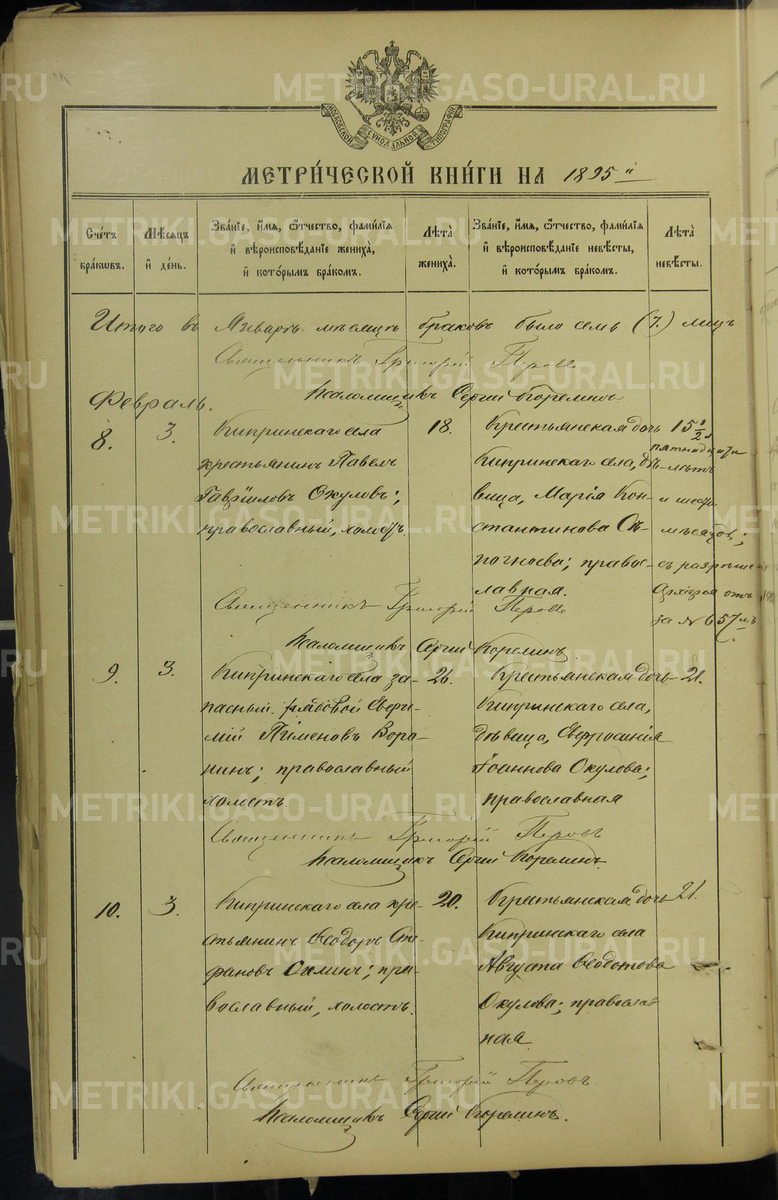 МОСКОВСКОЙ СѴНОДАЛЬНОЙ ТИПОГРАФІИ
МЕТРИ́ЧЕСКОЙ КНИ́ГИ НА 1895
Счétъ бра́кѡвъ.
Мѣ́сѧцъ и҆ де́нь.
Зва́нїе, и҆́мѧ, ѻ҆́тчество, фами́лїѧ и҆ вѣроисповѣ́данїе жениха̀, и҆ кото́рымъ бра́комъ.
Лѣ́та жениха̀.
Зва́нїе, и҆́мѧ, ѻ҆́тчество, фами́лїѧ и҆ вѣроисповѣ́данїе невѣ́сты, и҆ кото́рымъ бра́комъ.
Лѣ́та невѣ́сты.
Итого въ Январѣ мѣсяцѣ браковъ было семь (7.) лицъ
Священникъ Григорій Перовъ
Псаломщикъ Сергій Корелинъ
Февраль.
8. 3.
Кипринскаго села
крестьянинъ Павелъ
Гавріиловъ Окуловъ;
православный, холостъ
18.
Крестьянская дочь
Кипринскаго села, дѣ-
вица, Марія Кон-
стантинова
православная.
15 1/2
пятнадцати
лѣтъ
и шести
мѣсяцовъ;
съ разрѣшенія
Архіерея отъ
за № 657мъ
Священникъ Григорій Перовъ
Псаломщикъ Сергій Корелинъ.
9. 3.
Кипринскаго села за-
пасный рядовой Евфи-
мій Пименовъ Воро-
нинъ; православный
холостъ
26.
Крестьянская дочь
Кипринскаго села,
дѣвица, Евфросинія
Іоаннова Окулова;
православная
21.
Священникъ Григорій Перовъ
Псаломщикъ Сергій Корелинъ.
10. 3.
Кипринскаго села кре-
стьянинъ Ѳеодоръ Сте-
фановъ Силинъ; пра-
вославный, холостъ.
20.
Крестьянская дочь
Кипринскаго села
Августа Ѳеодотова
Окулова; православ-
ная.
21.
Священникъ Григорій Перовъ
Псаломщикъ Сергій Корелинъ.
METRIKI.GASO-URAL.RU